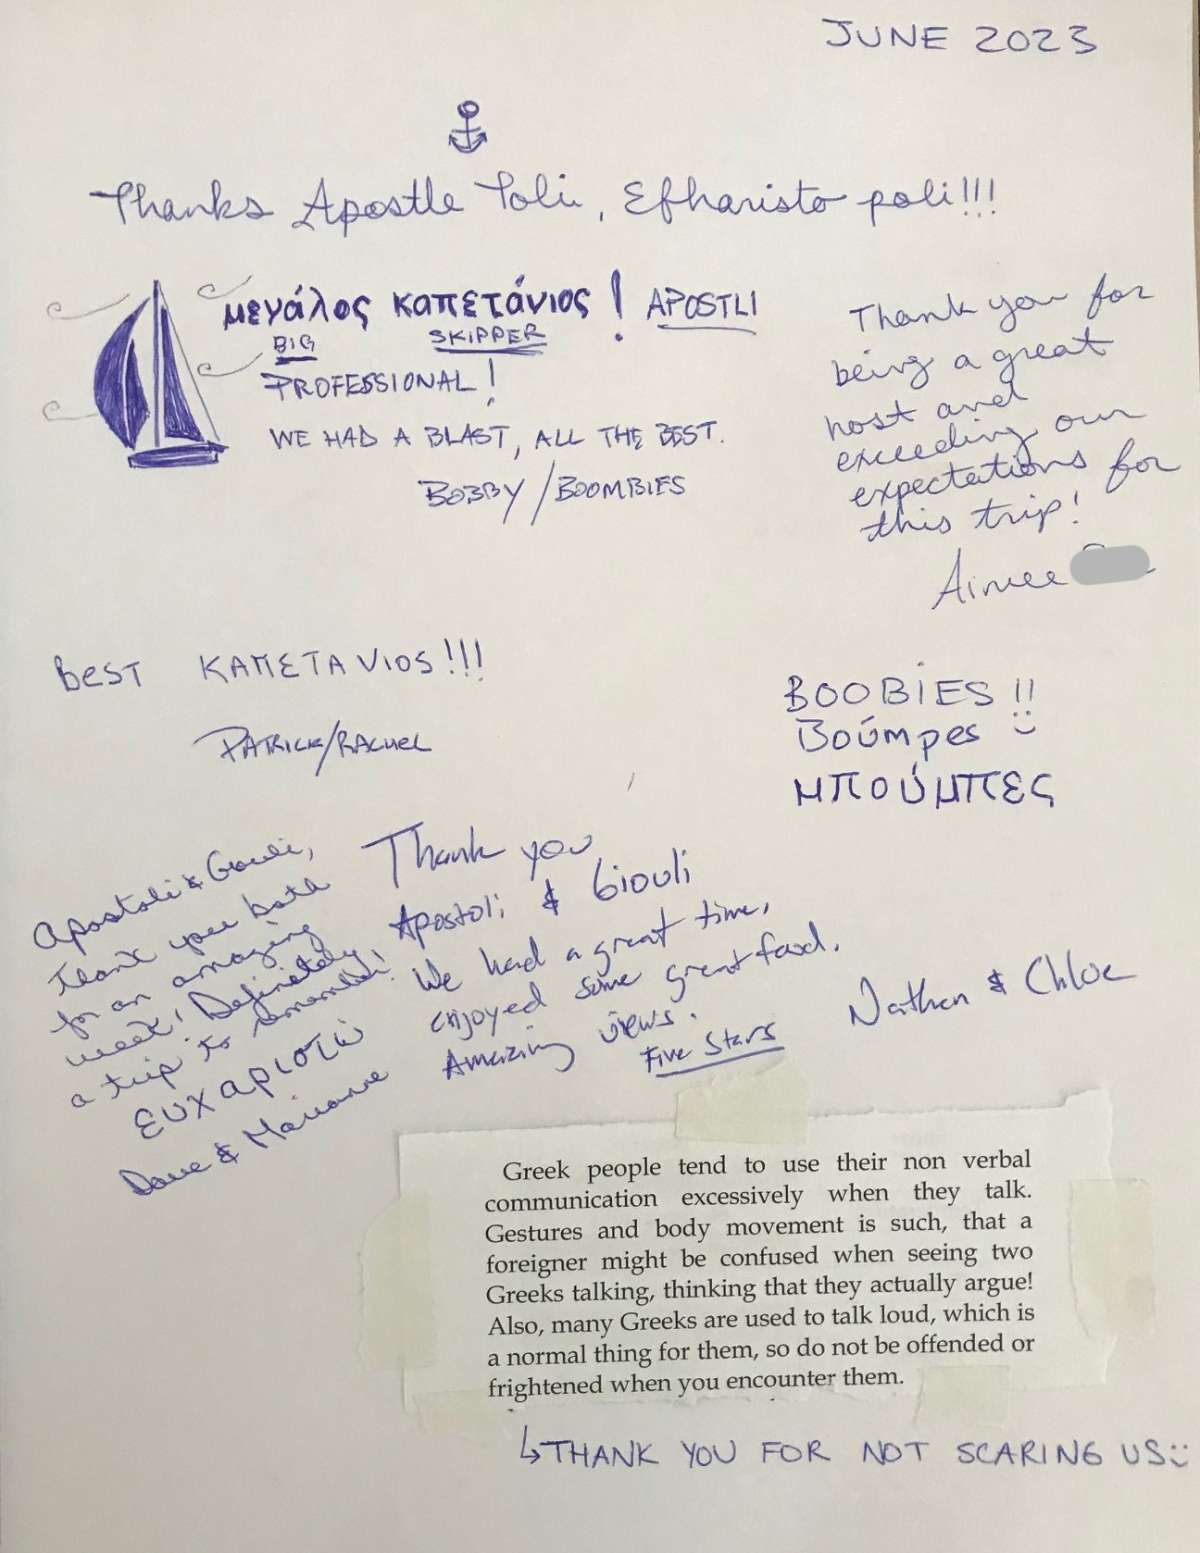 JUNE 2023
Thanks Apostle Toli, Efharisto poli!!!
μεγάλος καπετάνιος! APOSTLI
BIG SKIPPER
PROFESSIONAL!
WE HAD A BLAST, ALL THE BEST.
BOBBY/BOOMBIES
Thank you for
being a great
host and
exceeding our
expectations for
this trip!
Aimee
BEST ΚΑΠΕΤΑΝΙΟS!!!
PATRICK/RACHEL
BOOBIES!!
Βούmpes
μπούμπες
Apostoli & Giouli,
Thank you both
for an amazing
week! Definitely
a trip to remember!
ευχαριστώ
Dave & Marianne
Thank you
Apostoli & Giouli
We had a great time,
enjoyed some great food.
Amazing views.
Five Stars
Nathan & Chloe
Greek people tend to use their non verbal
communication excessively when they talk.
Gestures and body movement is such, that a
foreigner might be confused when seeing two
Greeks talking, thinking that they actually argue!
Also, many Greeks are used to talk loud, which is
a normal thing for them, so do not be offended or
frightened when you encounter them.
↳THANK YOU FOR NOT SCARING US